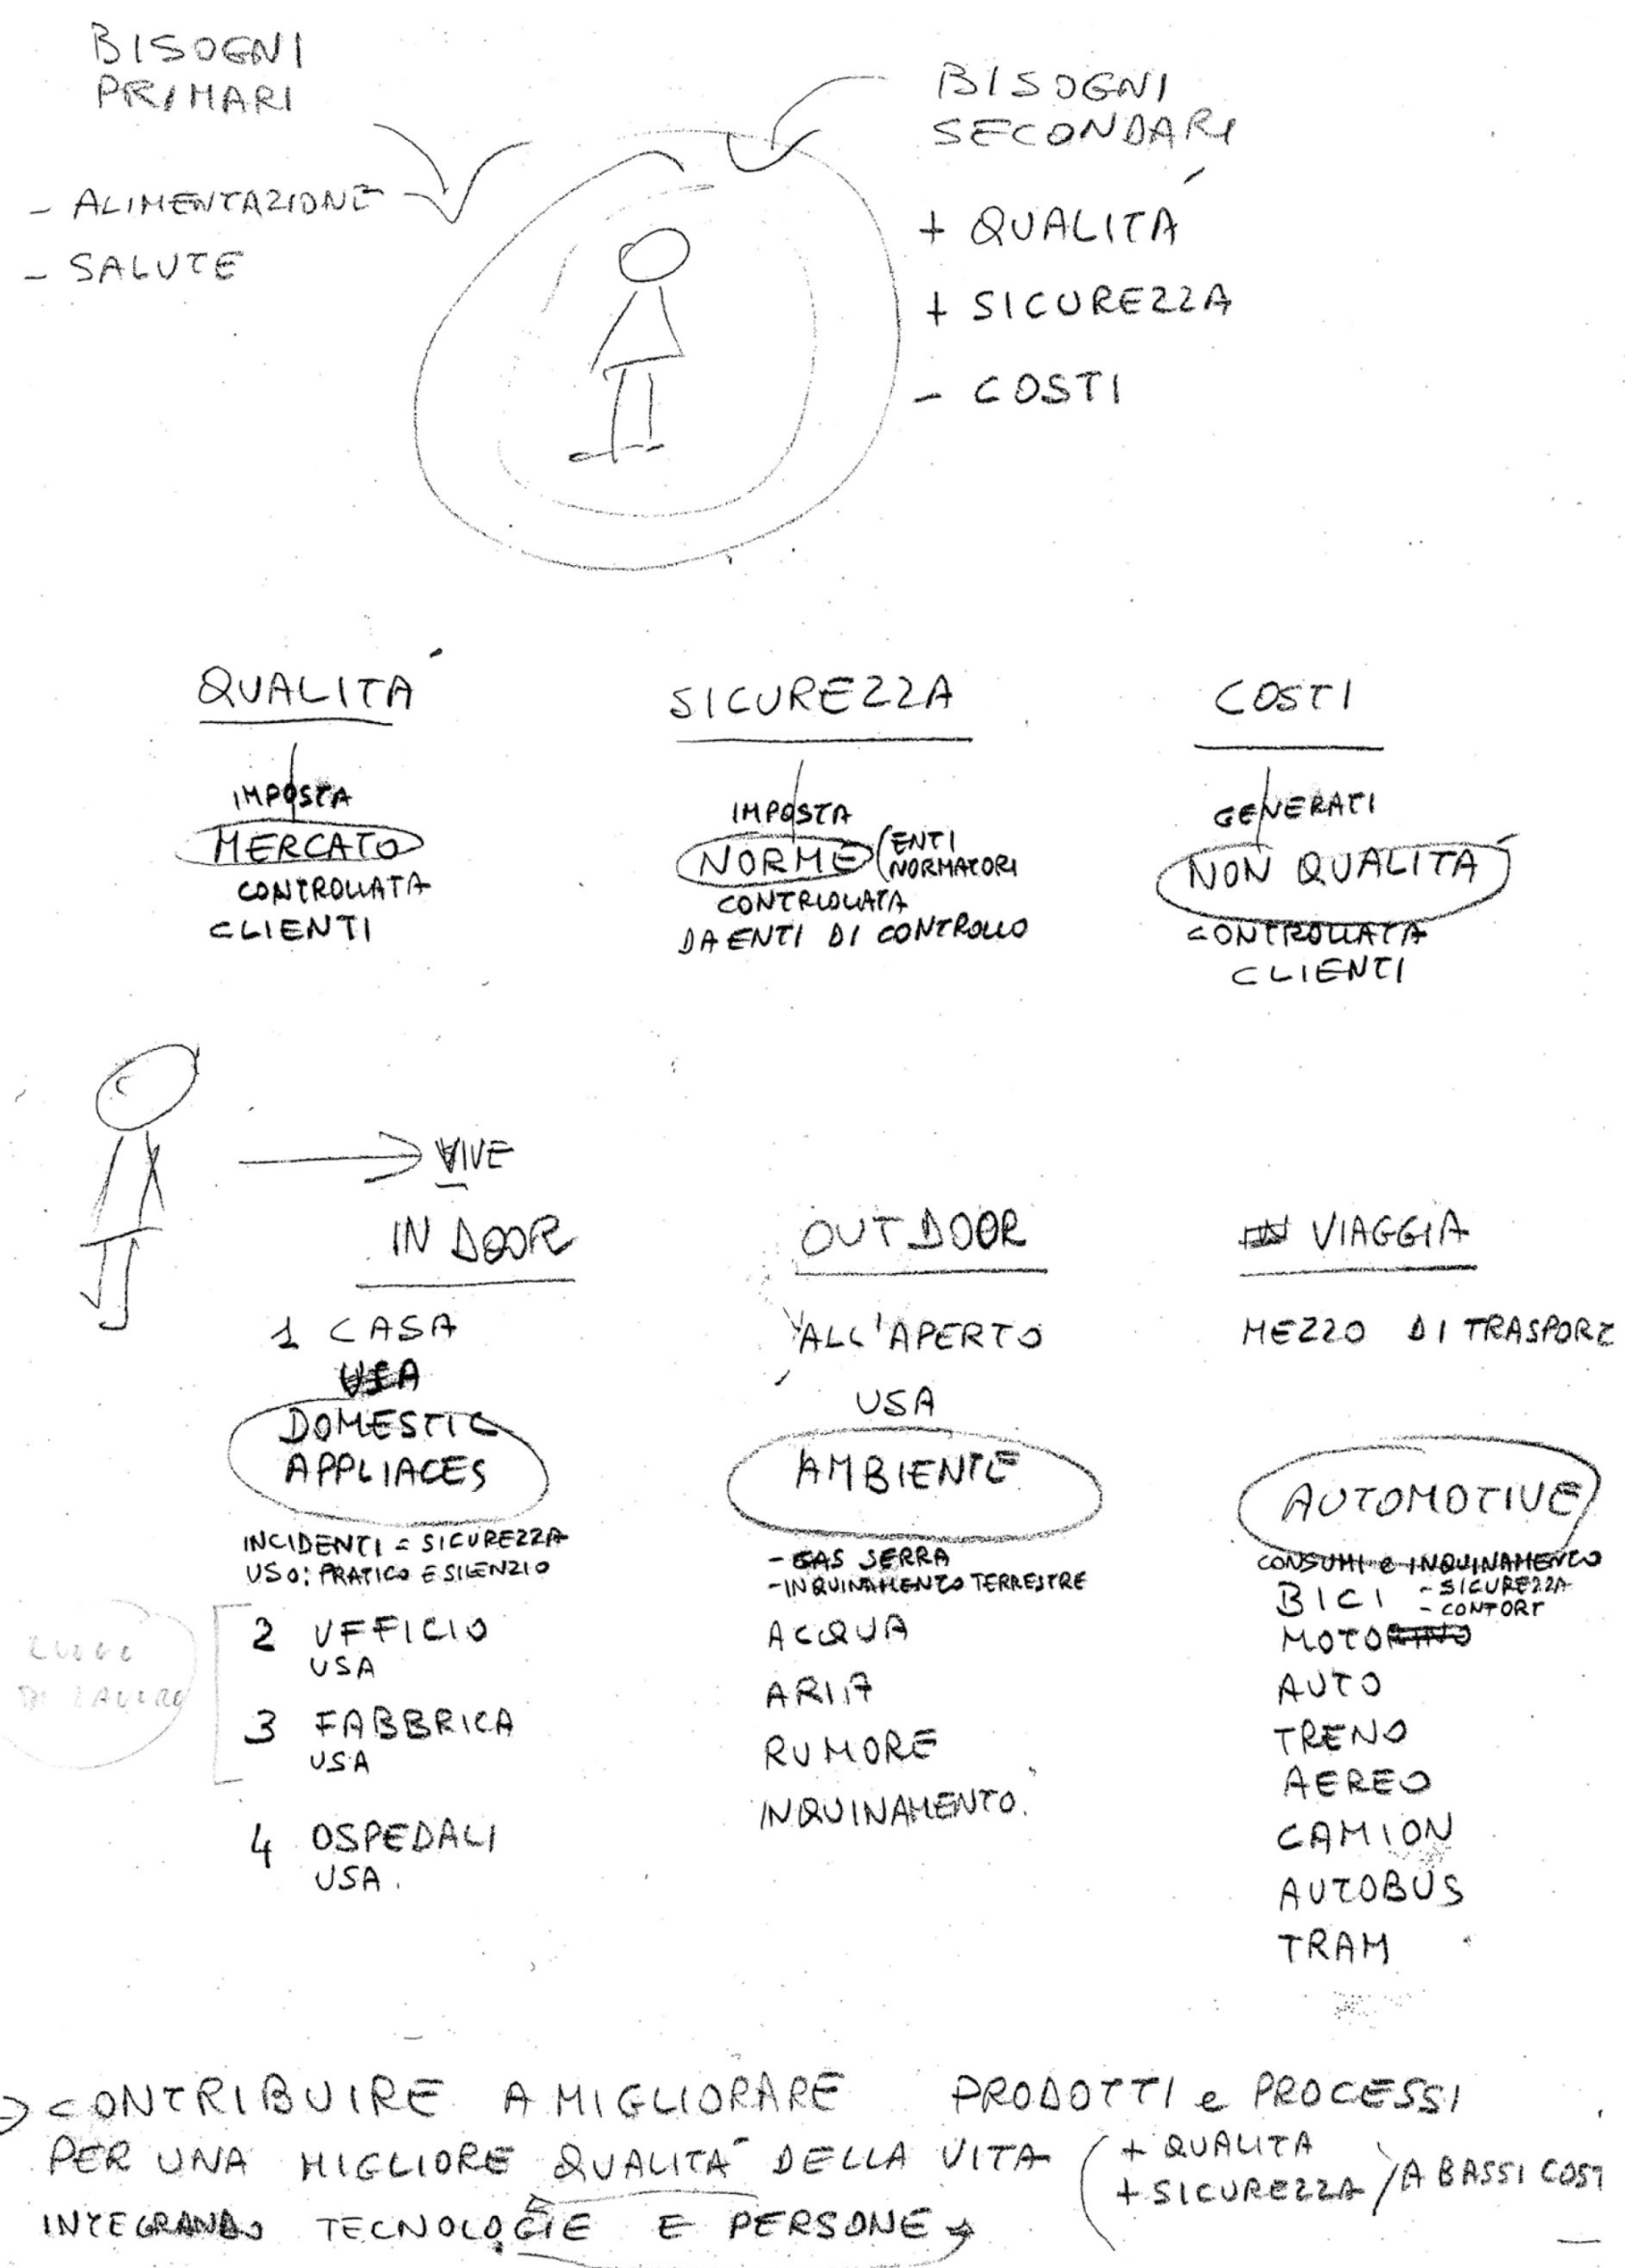 BISOGNI
PRIMARI
- ALIMENTAZIONE
- SALUTE
BISOGNI
SECONDARI
+ QUALITÀ
+ SICUREZZA
- COSTI
QUALITÀ
IMPOSTA
MERCATO
CONTROLLATA
CLIENTI
SICUREZZA
IMPOSTA
NORME (ENTI
NORMATORI
CONTROLLATA
DA ENTI DI CONTROLLO
COSTI
GENERATI
NON QUALITÀ
CONTROLLATA
CLIENTI
VIVE
IN DOOR
1 CASA
USA
DOMESTIC
APPLIACES
INCIDENTI = SICUREZZA
USO: PRATICO E SILENZIO
LUOGO
DI LAVORO
2 UFFICIO
USA
3 FABBRICA
USA
4 OSPEDALI
USA.
OUT DOOR
ALL'APERTO
USA
AMBIENTE
- GAS SERRA
- INQUINAMENTO TERRESTRE
ACQUA
ARIA
RUMORE
INQUINAMENTO.
VIAGGIA
MEZZO DI TRASPORT
AUTOMOTIVE
CONSUMI e INQUINAMENTO
BICI - SICUREZZA
- CONFORT
MOTORINO
AUTO
TRENO
AEREO
CAMION
AUTOBUS
TRAM
CONTRIBUIRE A MIGLIORARE PRODOTTI e PROCESSI
PER UNA MIGLIORE QUALITÀ DELLA VITA (+ QUALITA
+ SICUREZZA / A BASSI COSTI
INTEGRANDO TECNOLOGIE E PERSONE